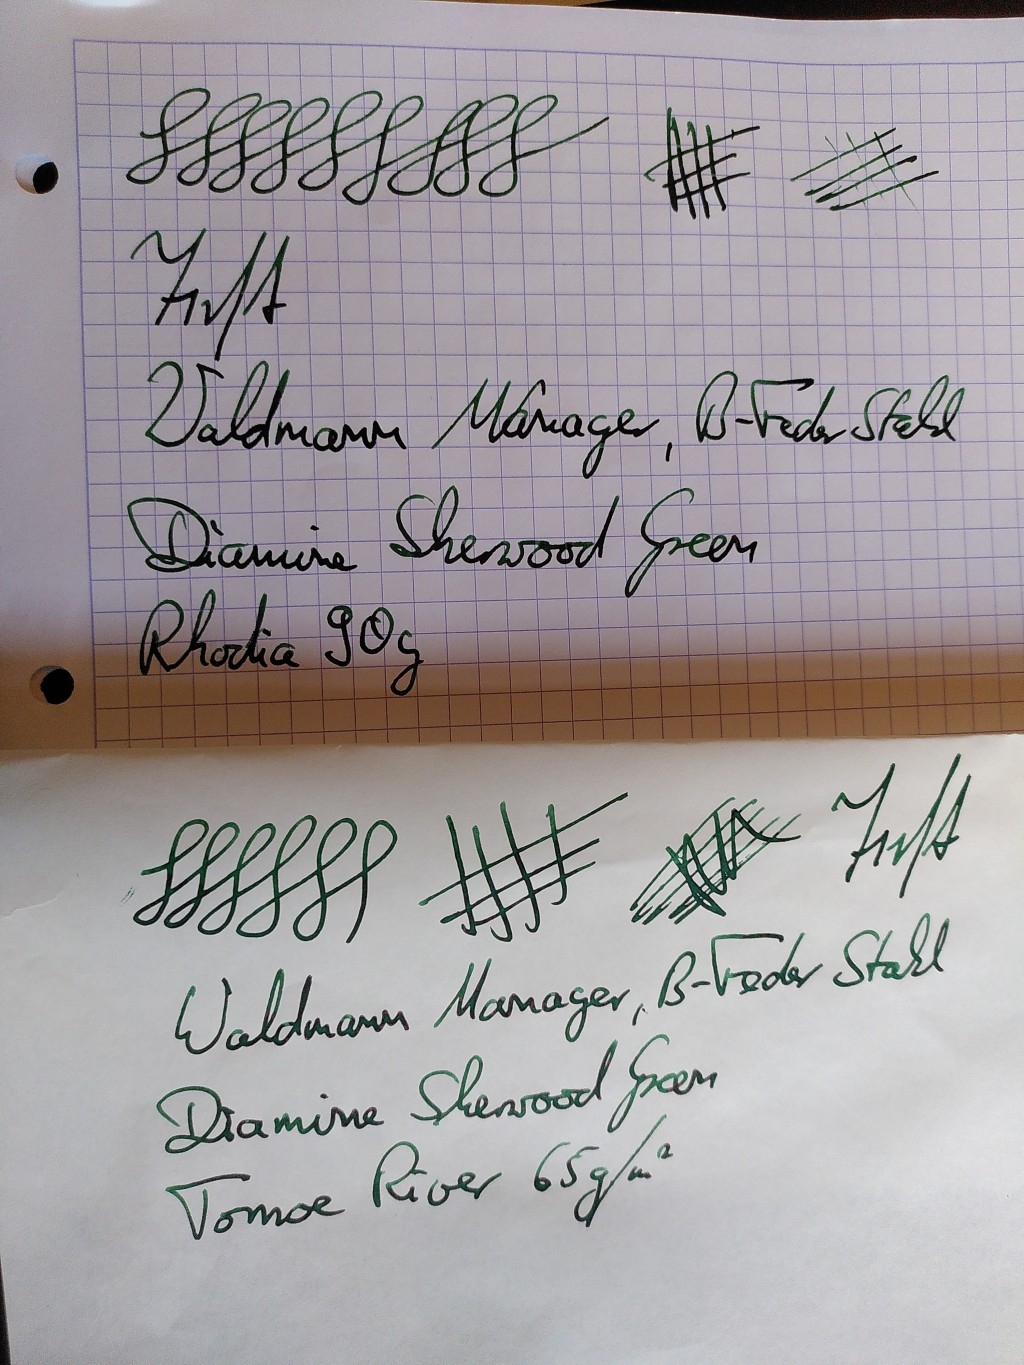 Waldmann Manager, B-Feder Stahl
Diamine Sherwood Green
Rhodia 90g
Waldmann Manager, B-Feder Stahl
Diamine Sherwood Green
Tomoe River 65g/m²